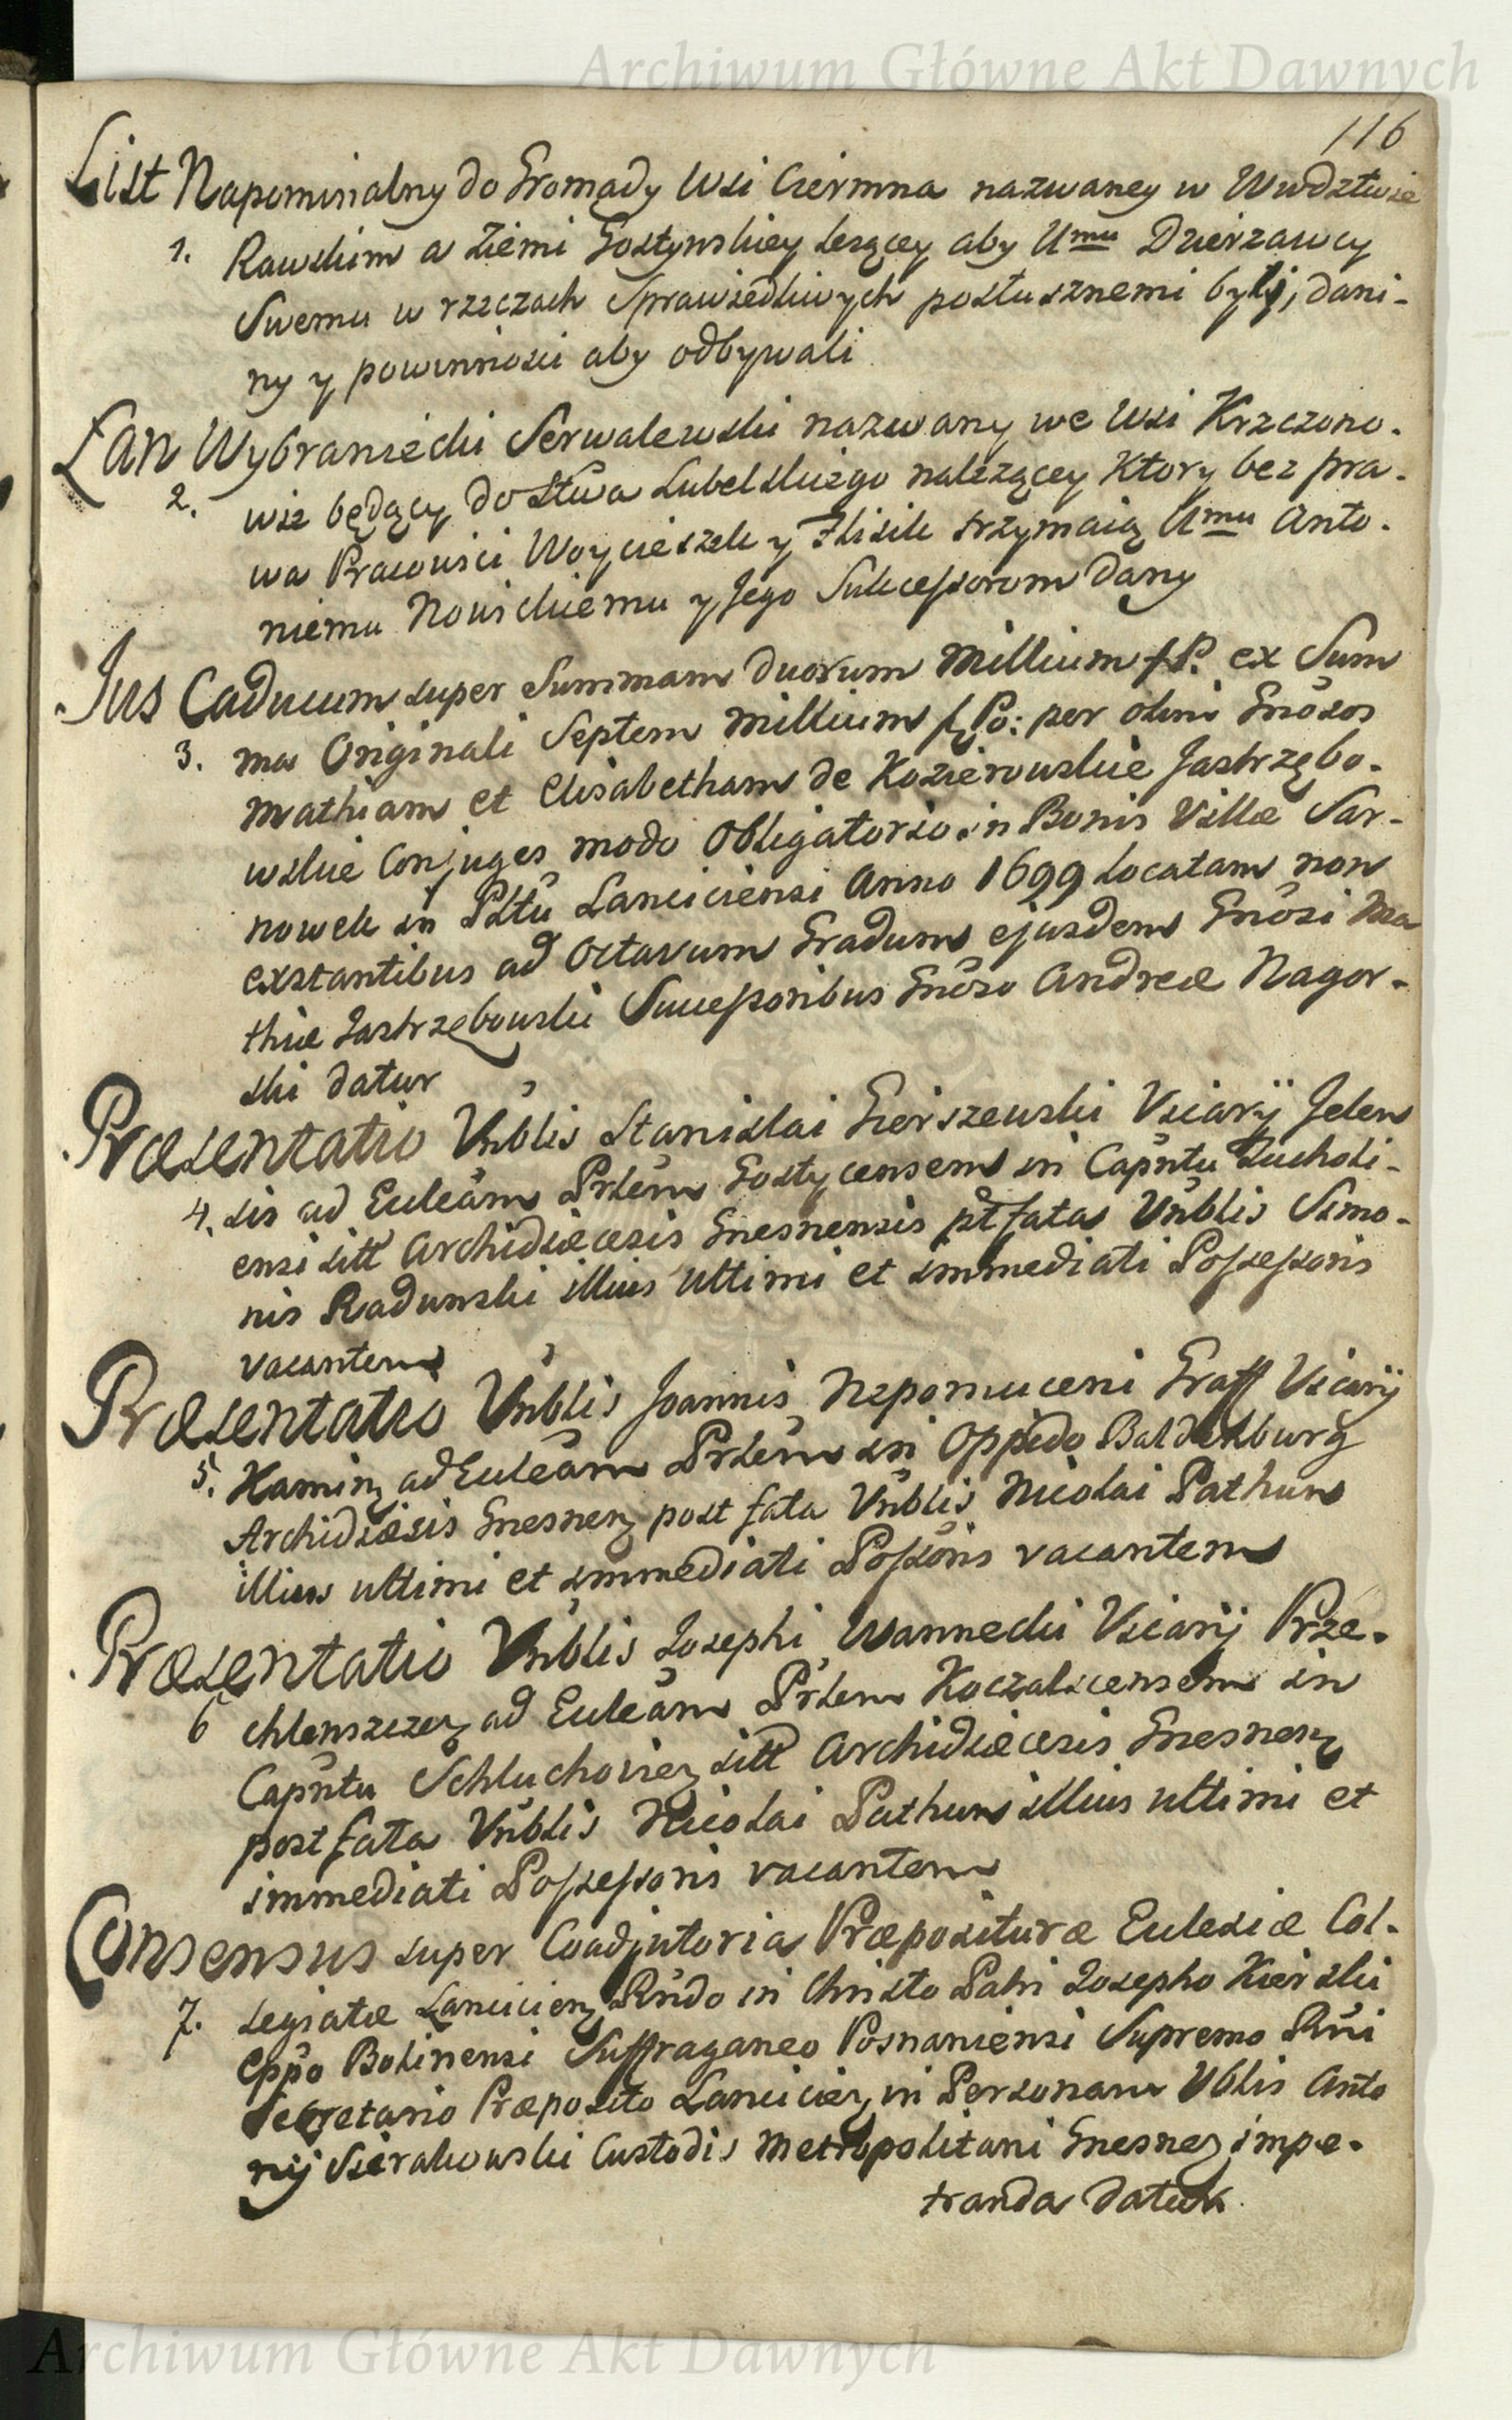 Archiwum Główne Akt Dawnych
116
List Napominalny do Gromady Wsi Ciermna nazwaney w Wwdztwie
1. Rawskim a Ziemi Gostynskiey leżącey aby Umu Dzierzawcy
Swemu w rzeczach Sprawiedliwych posłusznemi byli, dani-
ny y powinnosci aby odbywali
Łan Wybraniecki Serwalewski nazwany we Wsi Krzczono-
2. wie będący do Stwa Lubelskiego nalezącey Ktory bez pra-
wa Pracowici Woycieszek y Flisik trzymaią Umu Anto-
niemu Nowickiemu y Jego Sukcessorom dany
Jus Caducum super Summam duorum Millium f. P. ex Sum
3. ma Originali Septem Millium f. Po: per olim Gnosos
Mathiam et Elisabetham de Kozierowskie Jastrzębo-
wskie Conjuges modo Obligatorio in Bonis Villæ Sar-
nowek in Pltu Lanciciensi Anno 1699 locatam non
exstantibus ad Octavum Gradum ejusdem Gnosi Ma
thiæ Jastrzębowski Successoribus Gnoso Andreæ Nagor-
ski datur
Præsentatio Vnblis Stanislai Gierszewski Vicarij Jelen
4. sis ad Eccleam Prlem Gostycensem in Capntu Tucholi-
ensi sitt Archidiæcesis Gnesnensis pt fata Vnblis Simo-
nis Radunski illius Ultimi et immediati Possessoris
vacantem
Præsentatio Vnblis Joannis Nepomuceni Graff Vicarij
5. Kaminz ad Eccleam Prlem in Oppido Baldenburg
Archidiæsis Gnesnenz post fata Vnblis Nicolai Pathun
illius ultimi et immediati Possoris vacantem
Præsentatio Vnblis Josephi Wannecki Vicarij Prze-
6 chlenszczez ad Eccleam Prlem Koczalicensem in
Capntu Schluchoviez sitt Archidiæcesis Gnesnenz
post fata Vnblis Nicolai Pathun illius ultimi et
immediati Possessoris vacantem
Consensus super Coadjutoria Præposituræ Ecclesiæ Col-
7. legiatæ Lancicienz Rndo in Christo Patri Josepho Kierski
Eppo Bolinensi Suffraganeo Posnaniensi Supremo Rni
Secretario Præposito Lanciciez in Personam Vblis Anto
nij Sierakowski Custodis Metropolitani Gnesnez impe-
tranda datur.
Archiwum Główne Akt Dawnych